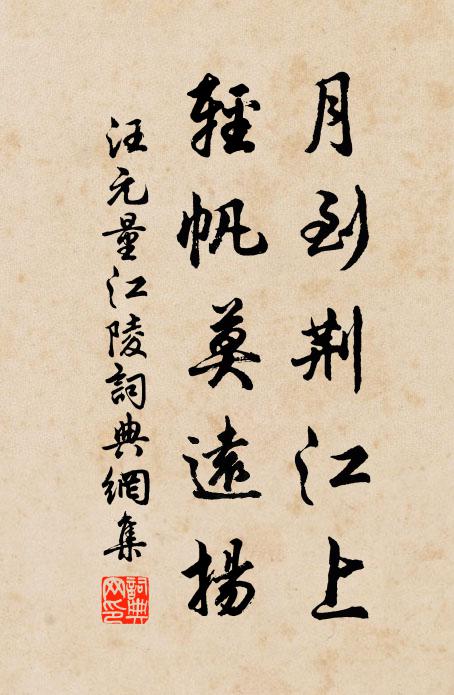 月到荆江上
輕帆莫遠揚
汪元量江陵詞典網集
詞典網印